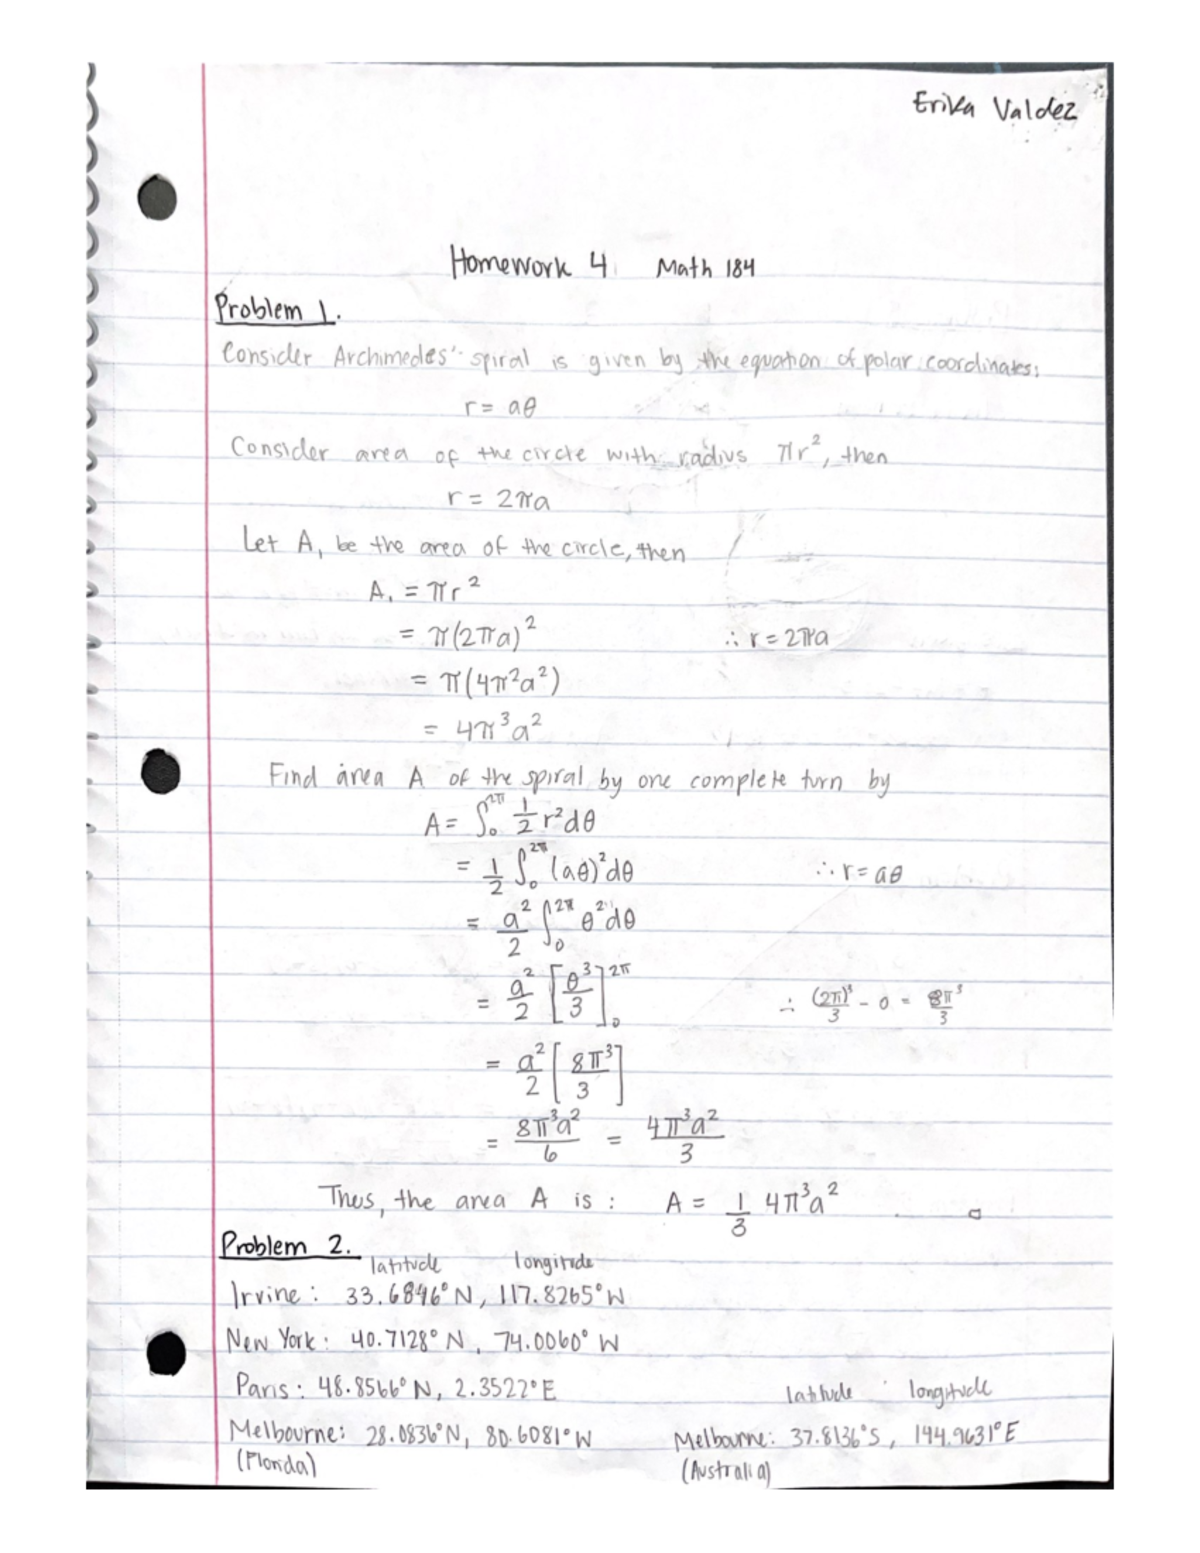 Erika Valdez
Homework 4 Math 184
Problem 1.
Consider Archimedes' spiral is given by the equation of polar coordinates:
r = aθ
Consider area of the circle with radius πr², then
r = 2πa
Let A₁ be the area of the circle, then
A₁ = πr²
= π(2πa)² ∴ r = 2πa
= π(4π²a²)
= 4π³a²
Find area A of the spiral by one complete turn by
A = ∫₀^2π 1/2 r²dθ
= 1/2 ∫₀^2π (aθ)²dθ ∴ r = aθ
= a²/2 ∫₀^2π θ²dθ
= a²/2 [θ³/3]₀^2π ∴ (2π)³/3 - 0 = 8π³/3
= a²/2 [8π³/3]
= 8π³a²/6 = 4π³a²/3
Thus, the area A is: A = 1/3 4π³a² □
Problem 2.
latitude longitude
Irvine: 33.6846° N, 117.8265° W
New York: 40.7128° N, 74.0060° W
Paris: 48.8566° N, 2.3522° E latitude longitude
Melbourne: 28.0836° N, 80.6081° W Melbourne: 37.8136° S, 144.9631° E
(Florida) (Australia)